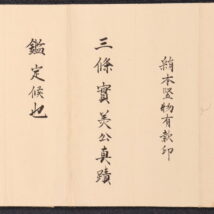 絹本竪物有款印
三條實美公真蹟
鑑定候也